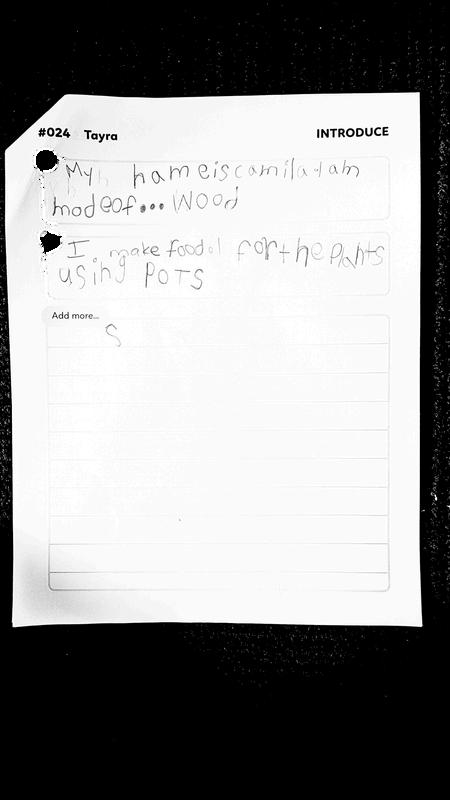 #024 Tayra INTRODUCE
My name is camila I am
modeof... Wood
I make food for the Plants
using POTS
Add more...
S